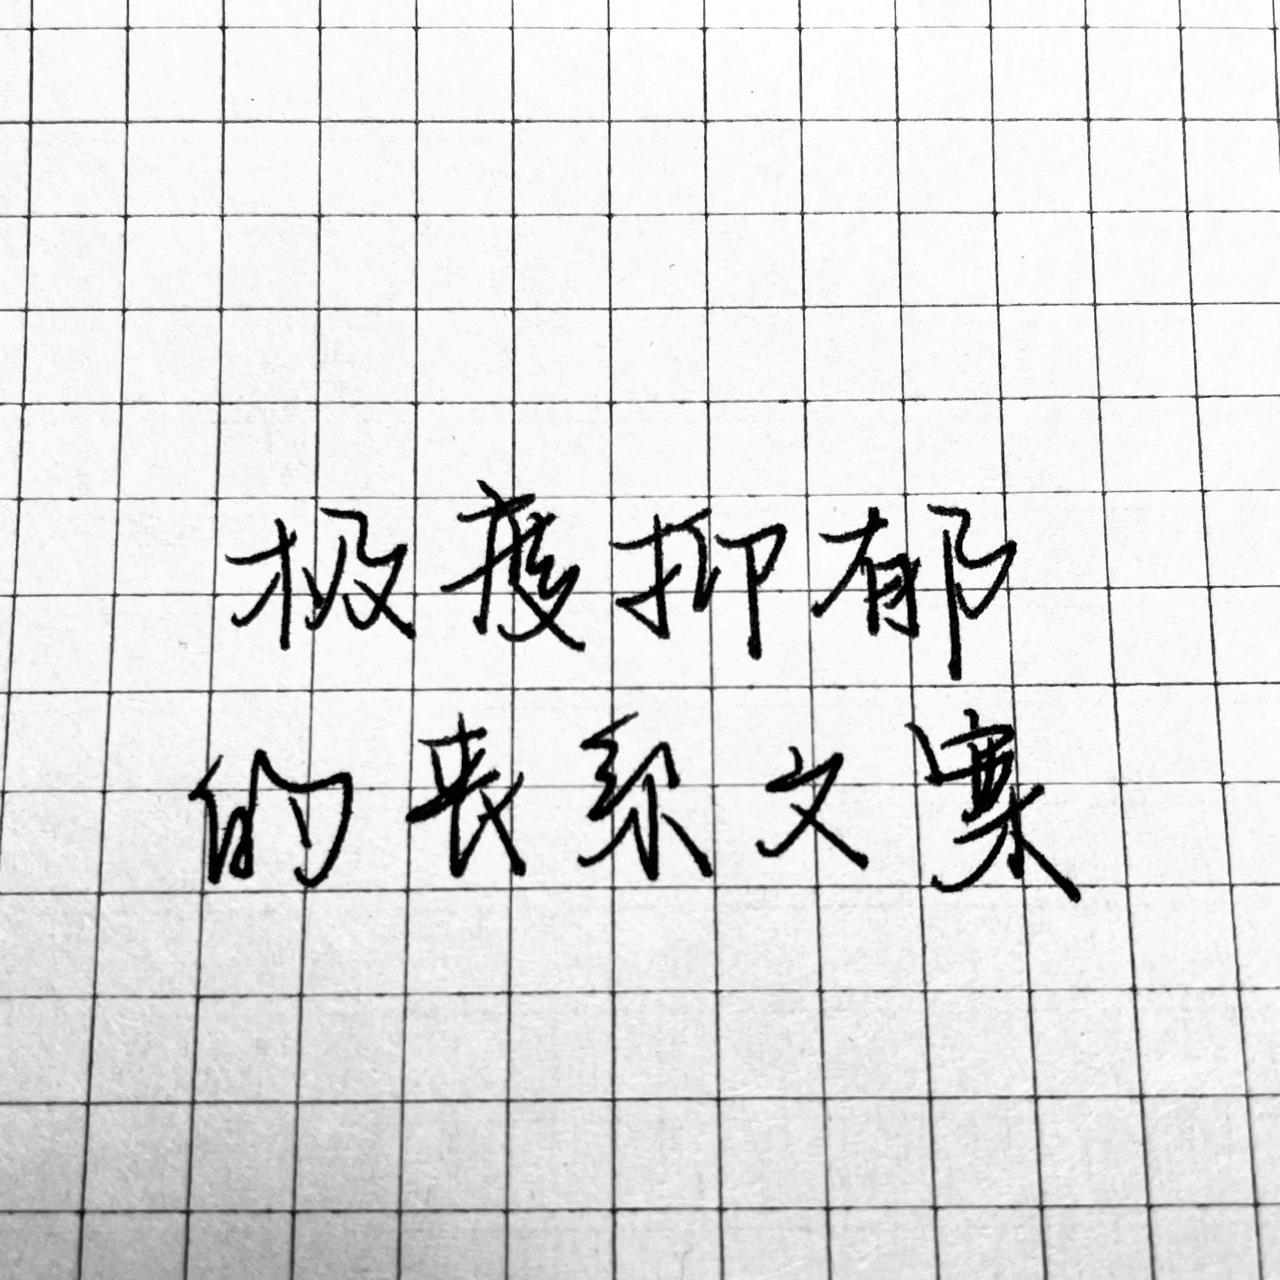 极度抑郁
的丧系文案